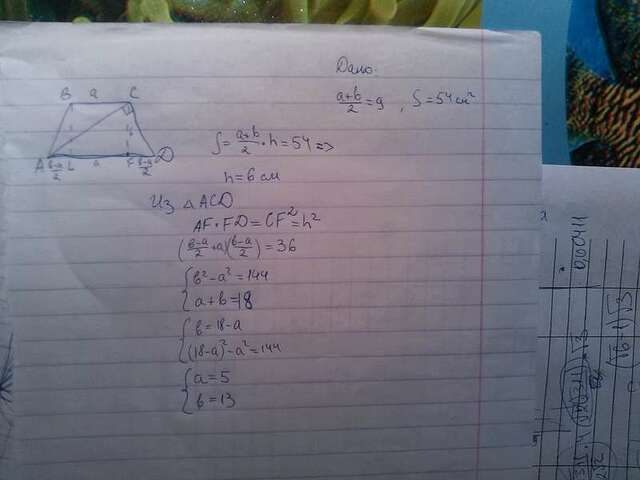 Дано:
(a+b)/2 = 9 , S = 54 см²
B a C
h
A (b-a)/2 L a F (b-a)/2 D
S = (a+b)/2 · h = 54 =>
h = 6 см
Из △ACD
AF · FD = CF² = h²
((b-a)/2 + a)((b-a)/2) = 36
{ b² - a² = 144
a + b = 18
{ b = 18 - a
(18-a)² - a² = 144
{ a = 5
b = 13